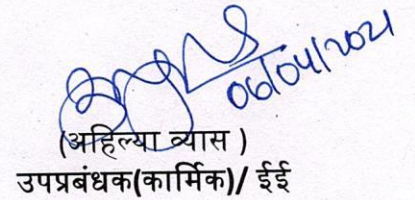 06/04/2021
(अहिल्या व्यास )
उपप्रबंधक(कार्मिक)/ ईई